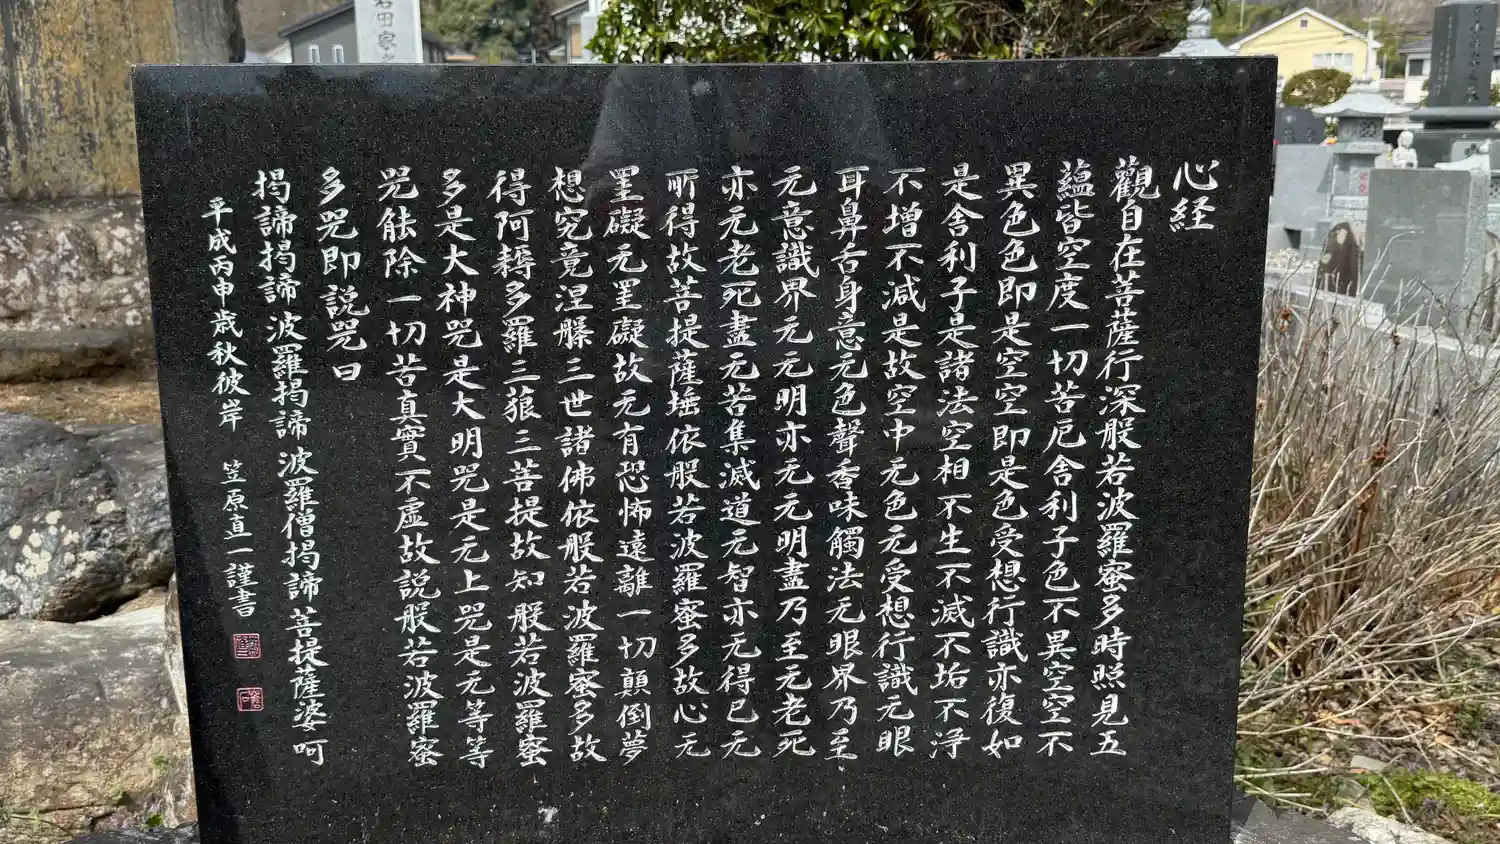 心経
觀自在菩薩行深般若波羅蜜多時照見五
蘊皆空度一切苦厄舎利子色不異空空不
異色色即是空空即是色受想行識亦復如
是舎利子是諸法空相不生不滅不垢不浄
不増不減是故空中无色无受想行識无眼
耳鼻舌身意无色聲香味觸法无眼界乃至
无意識界无无明亦无无明盡乃至无老死
亦无老死盡无苦集滅道无智亦无得已无
所得故菩提薩埵依般若波羅蜜多故心无
罣礙无罣礙故无有恐怖遠離一切顛倒夢
想究竟涅槃三世諸佛依般若波羅蜜多故
得阿耨多羅三藐三菩提故知般若波羅蜜
多是大神咒是大明咒是无上咒是无等等
咒能除一切苦真實不虚故説般若波羅蜜
多咒即説咒曰
掲諦掲諦波羅掲諦波羅僧掲諦菩提薩婆呵
平成丙申歳秋彼岸 笠原直一謹書